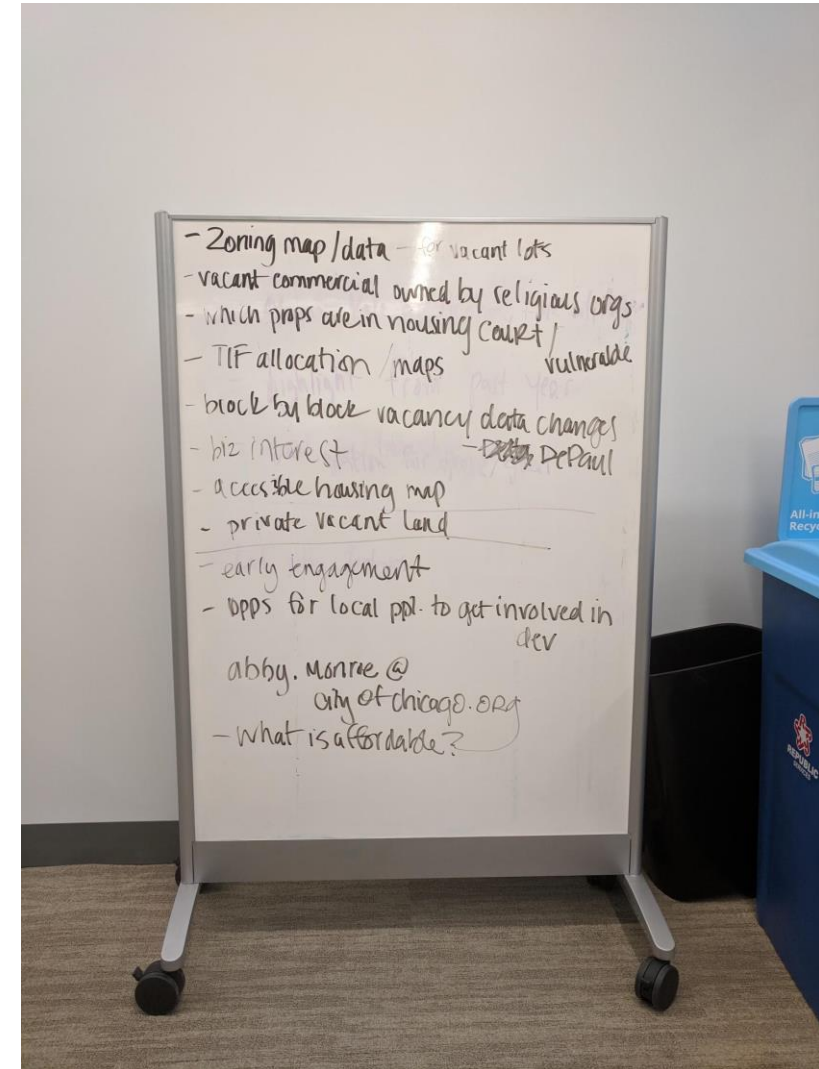 - Zoning map / data - for vacant lots
- vacant commercial owned by religious orgs
- which props are in housing court /
vulnerable
- TIF allocation / maps
- block by block vacancy data changes
- DePaul
- biz interest
- accessible housing map
- private vacant land
- early engagement
- opps for local ppl. to get involved in
dev
abby.monroe@
cityofchicago.org
- What is affordable?
All-in
Recyc
REPUBLIC
SERVICES